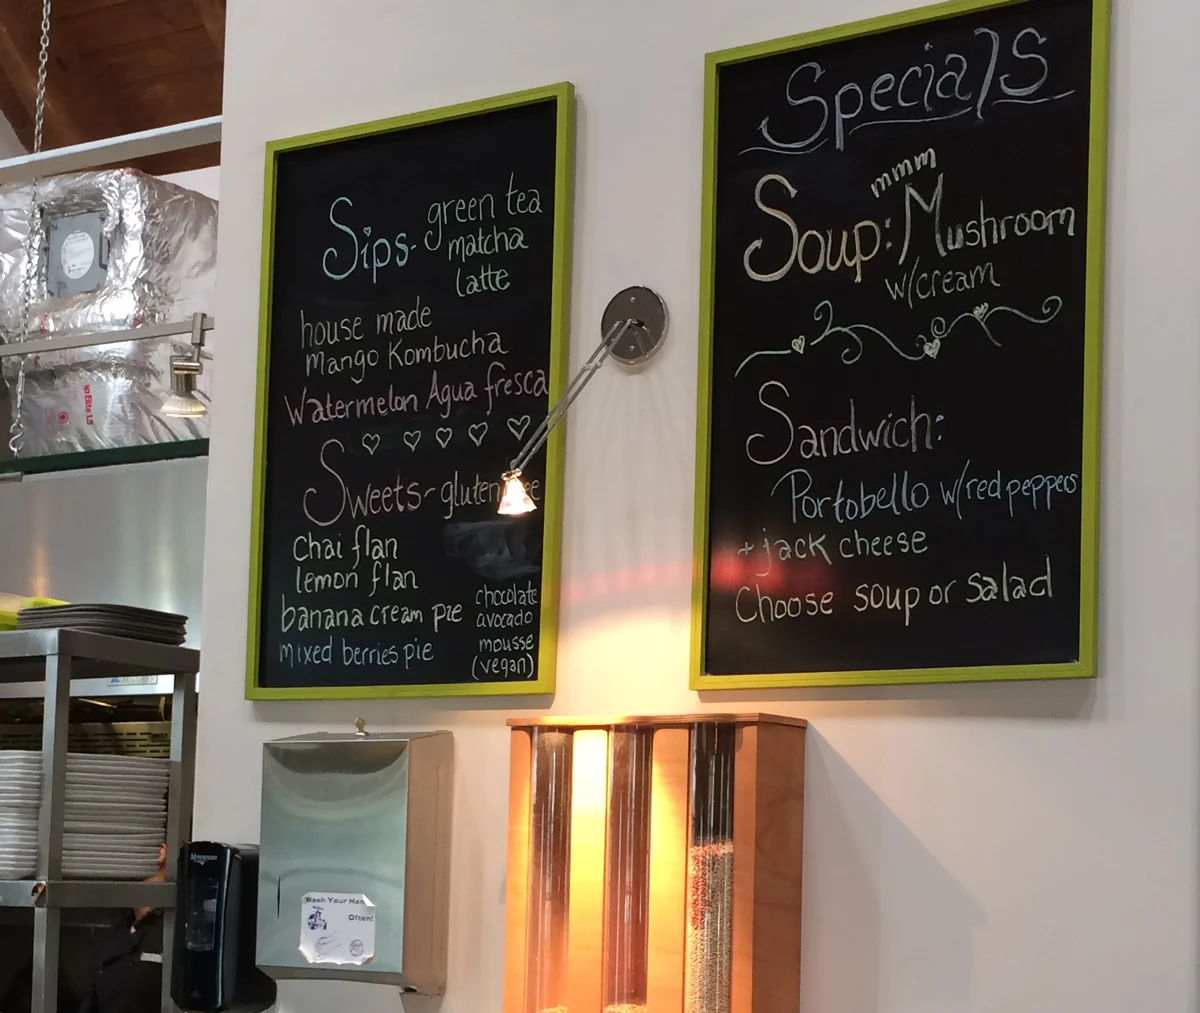 Sips- green tea
matcha
latte
house made
mango Kombucha
Watermelon Agua fresca
Sweets- gluten
chai flan
lemon flan
banana cream pie
mixed berries pie
chocolate
avocado
mousse
(vegan)
Specials
mmm
Soup: Mushroom
w/cream
Sandwich:
Portobello w/red peppers
+ jack cheese
Choose soup or salad
Wash Your Han
Often!